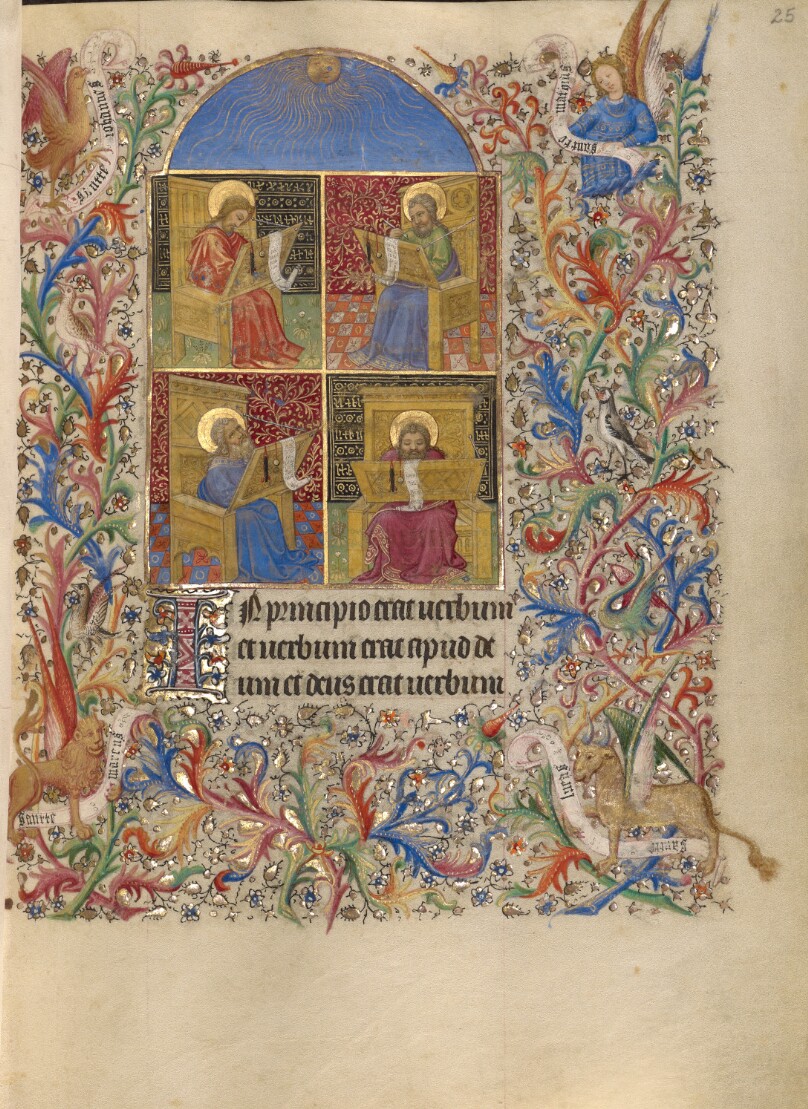 25
sancte
iohannes
sancte
matheus
IN principio erat uerbum
et uerbum erat apud de
um et deus erat uerbum
sancte
marcus
lucas